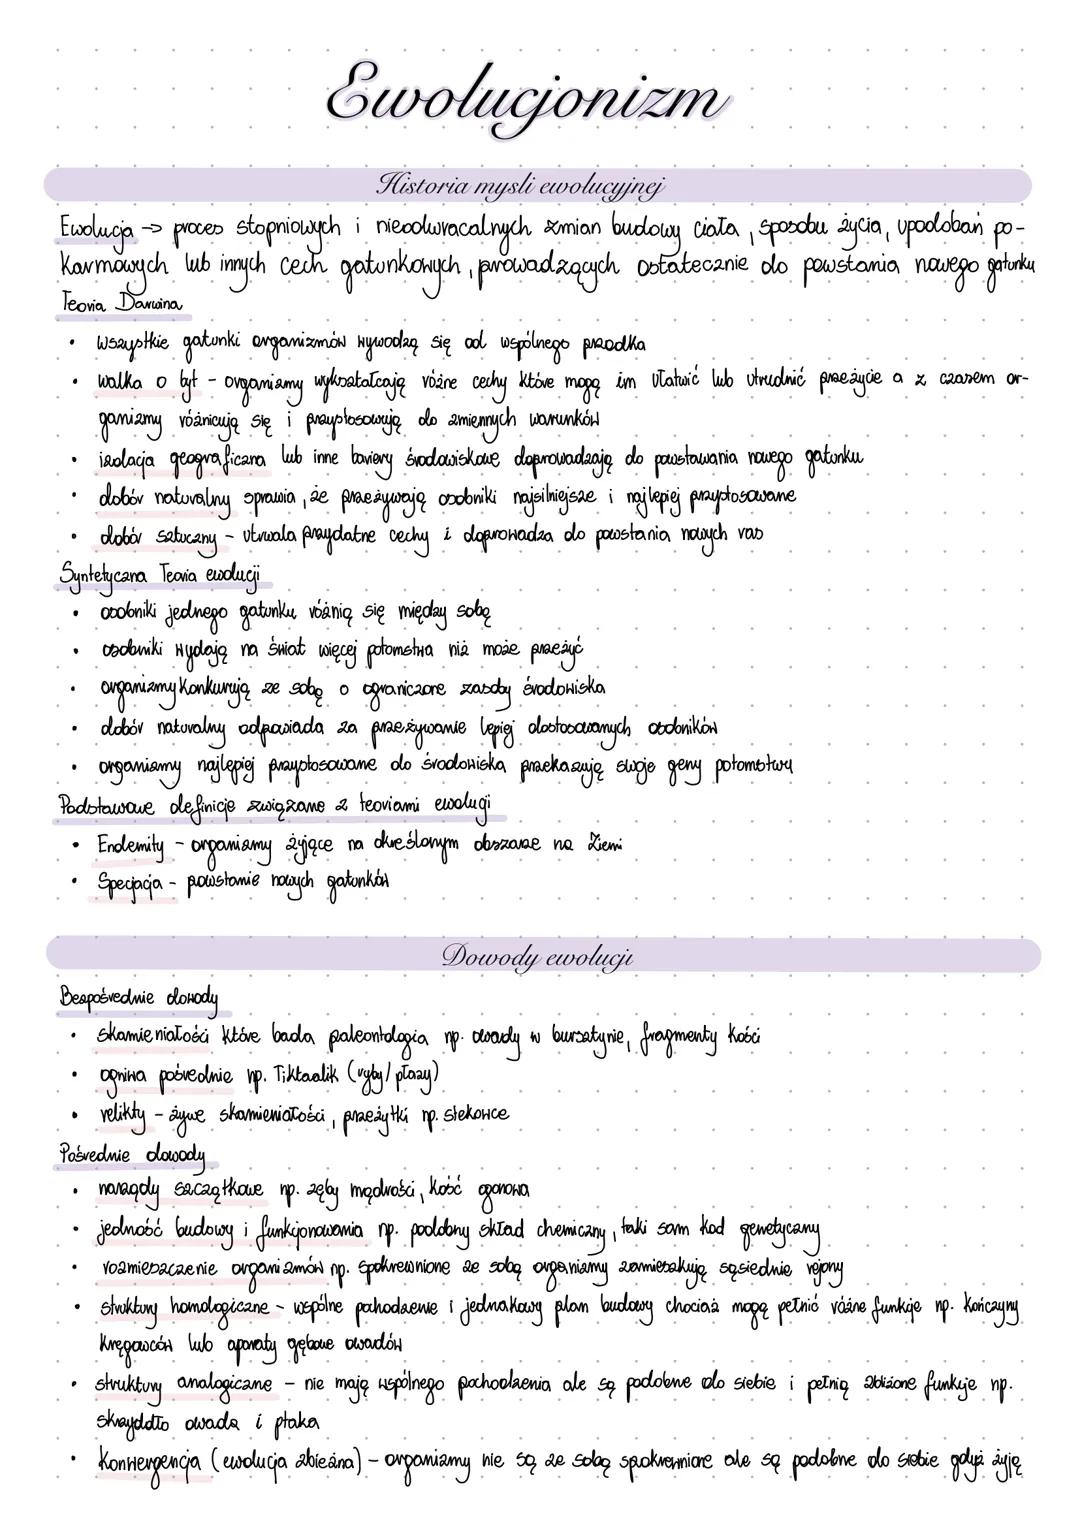 Ewolucjonizm
Historia mysli ewolucyjnej
Ewolucja -> proces stopniowych i nieodwracalnych zmian budowy ciała, sposobu życia, upodobań po-
karmowych lub innych cech gatunkowych, prowadzących ostatecznie do powstania nowego gatunku
Teoria Darwina
• wszystkie gatunki organizmów wywodzą się od wspólnego przodka
• walka o byt - organizmy wykształcają różne cechy które mogą im ułatwić lub utrudnić przeżycie a z czasem or-
ganizmy różnicują się i przystosowują do zmiennych warunków
• izolacja geograficzna lub inne bariery środowiskowe doprowadzają do powstawania nowego gatunku
• dobór naturalny sprawia, że przeżywają osobniki najsilniejsze i najlepiej przystosowane
• dobór sztuczny - utrwala przydatne cechy i doprowadza do powstania nowych ras
Syntetyczna Teoria ewolucji
• osobniki jednego gatunku różnią się między sobą
• osobniki wydają na świat więcej potomstwa niż może przeżyć
• organizmy konkurują ze sobą o ograniczone zasoby środowiska
• dobór naturalny odpowiada za przeżywanie lepiej dostosowanych osobników
• organizmy najlepiej przystosowane do środowiska przekazują swoje geny potomstwu
Podstawowe definicje związane z teoriami ewolucji
• Endemity - organizmy żyjące na określonym obszarze na Ziemi
• Specjacja - powstanie nowych gatunków
Dowody ewolucji
Bezpośrednie dowody
• skamieniałości które bada paleontologia np. owady w bursztynie, fragmenty kości
• ogniwa pośrednie np. Tiktaalik (ryby/płazy)
• relikty - żywe skamieniałości, przeżytki np. stekowce
Pośrednie dowody
• narządy szczątkowe np. zęby mądrości, kość ogonowa
• jedność budowy i funkcjonowania np. podobny skład chemiczny, taki sam kod genetyczny
• rozmieszczenie organizmów np. spokrewnione ze sobą organizmy zamieszkują sąsiednie rejony
• struktury homologiczne - wspólne pochodzenie i jednakowy plan budowy chociaż mogą pełnić różne funkcje np. kończyny
kręgowców lub aparaty gębowe owadów
• struktury analogiczne - nie mają wspólnego pochodzenia ale są podobne do siebie i pełnią zbliżone funkcje np.
skrzyddło owada i ptaka
• Konwergencja (ewolucja zbieżna) - organizmy nie są ze sobą spokrewnione ale są podobne do siebie gdyż żyją